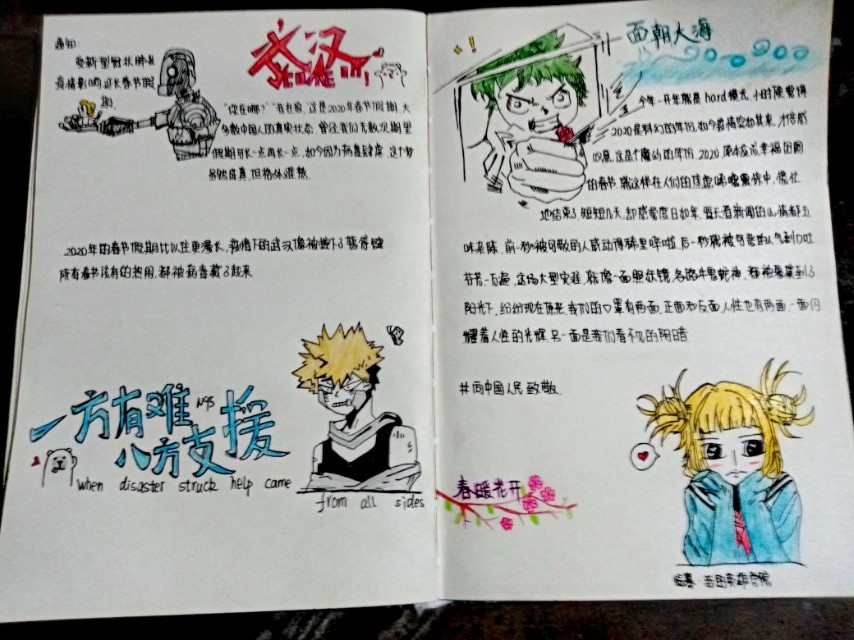 通知:
受新型冠状肺炎
疫情影响延长春节假
期
武汉
"你在哪?""我在家,这是2020年春节假期,大
多数中国人的真实状态,曾经我们无数次期望
假期可长一点再长一点,如今因为病毒肆虐,这个梦
虽然成真,但格外沉熬
2020年的春节假期比以往更漫长,疫情下的武汉像被按下了暂停键
所有春节该有的热闹,都被病毒藏了起来
一方有难
N95
八方支援
when disaster struck help came
from all sides
面朝大海
今年一开年就是hard模式,小时候觉得
2020是科幻的年份,如今疫情突如其来,才倍感
叹息,这是个魔幻的年份,2020原本应成幸福团圆
的春节,就这样在人们的焦虑
地结束了,短短几天,却感觉度日如年,每天看新闻的心情都五
味杂陈,前一秒被可敬的人感动得稀里哗啦,后一秒就被可恶的人气到口吐
芬芳,瓦遍,这场大型灾难,就像一面照妖镜,各路牛鬼蛇神,都被暴露到了
阳光下,纷纷现在原形,我们的口罩有两面,正面和反面人性也有两面,一面闪
耀着人性的光辉,另一面是我们看不见的阴暗
#向中国人民致敬
春暖花开